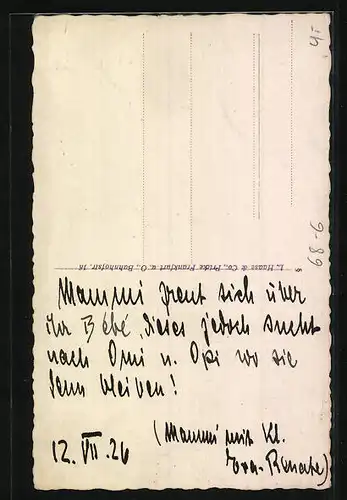 4.-
68-6
L. Haase & Co., Fricke Frankfurt a. O., Bahnhofstr. 16
Mammi freut sich über
ihr Bébé, dieses jedoch sucht
nach Omi u. Opi wo sie
denn bleiben!
(Mammi mit kl.
Eva-Renate)
12. VII. 26